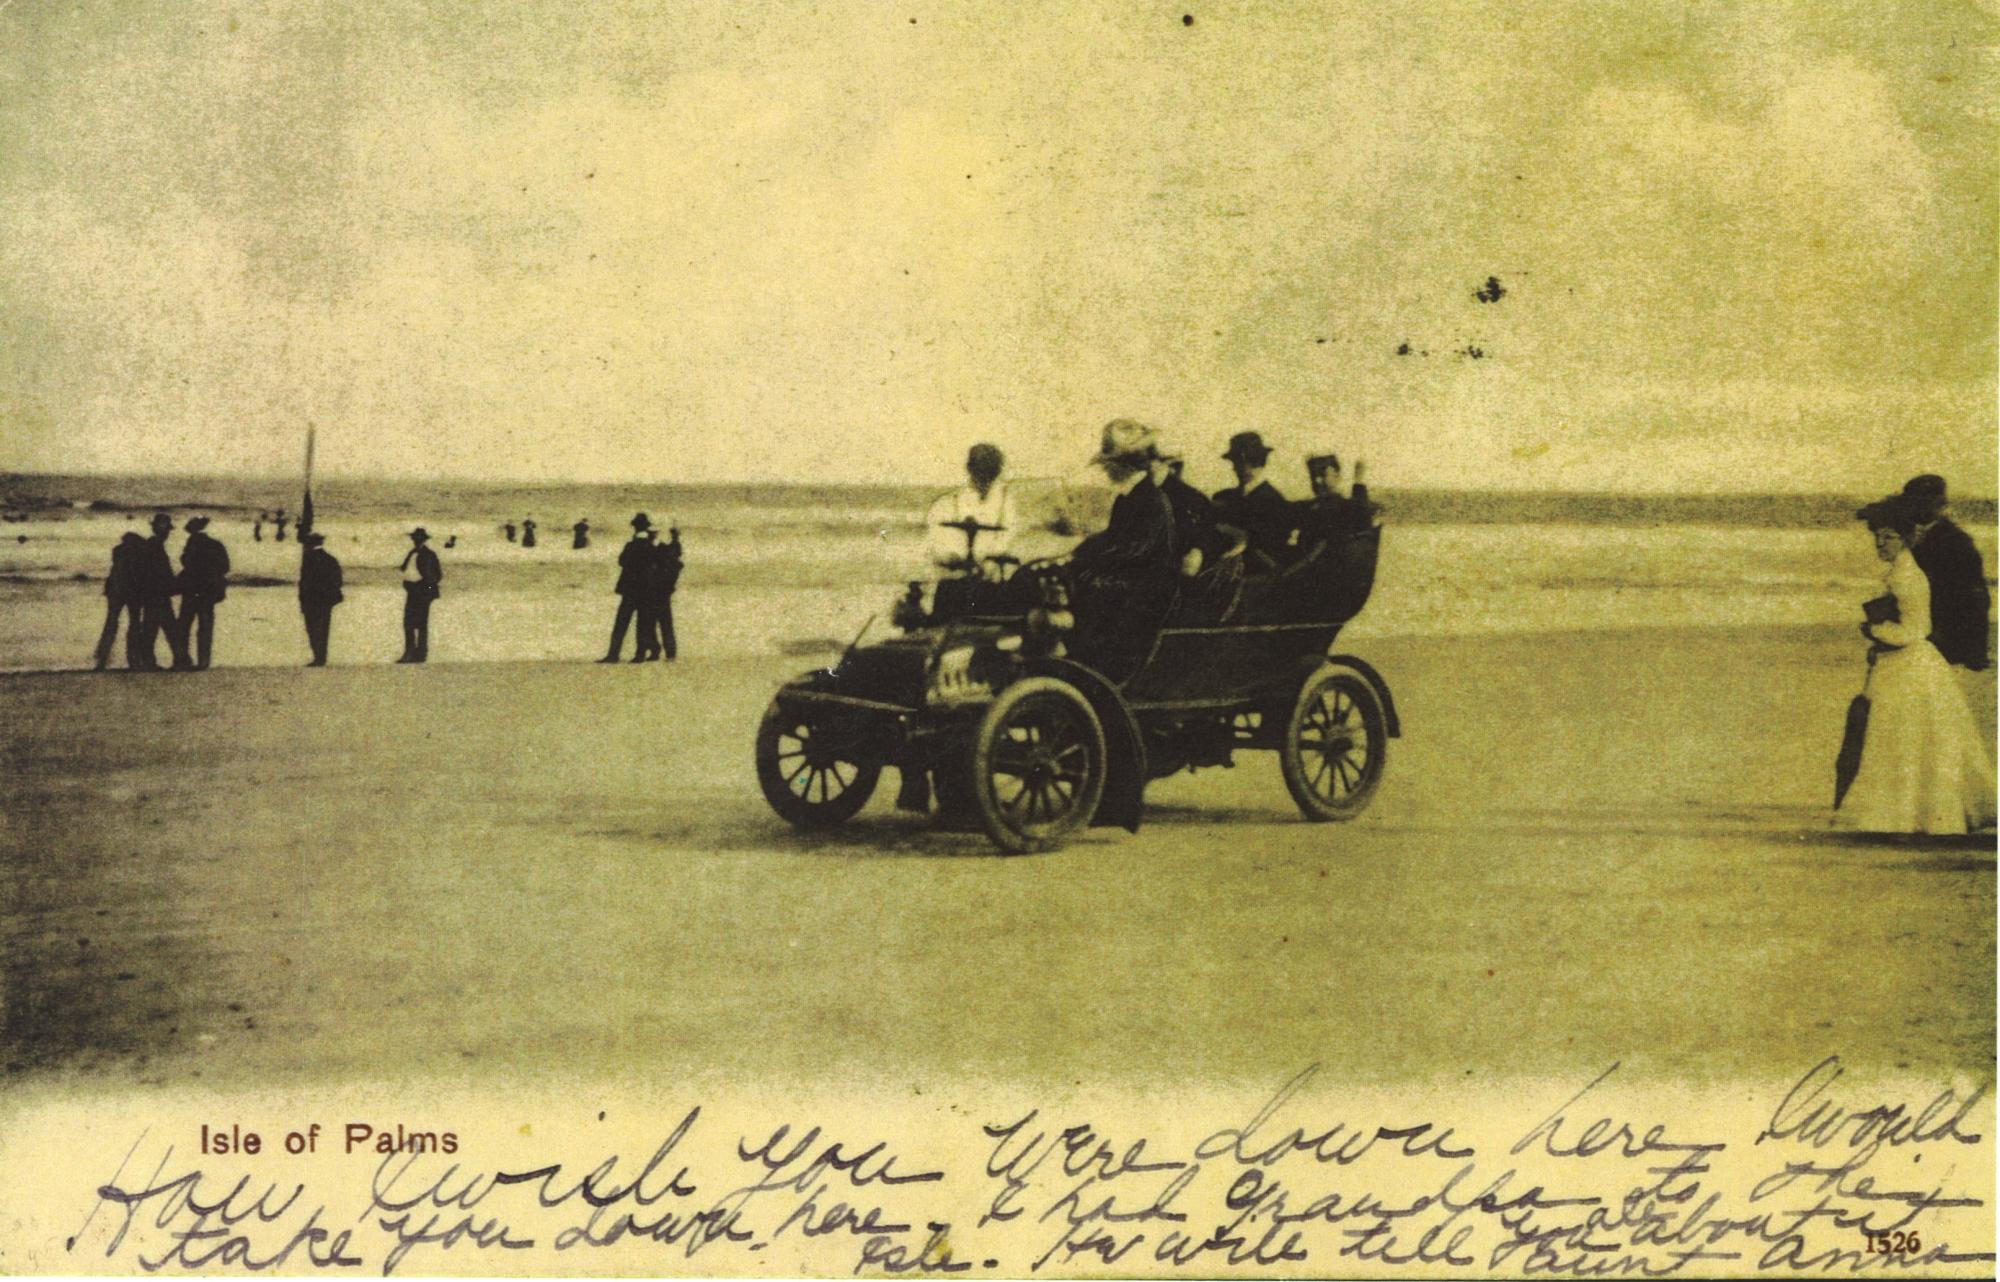 Isle of Palms
How I wish you were down here I would
take you down here. I had Grandpa to this
Isle. He will tell you all about it
aunt anna
1526